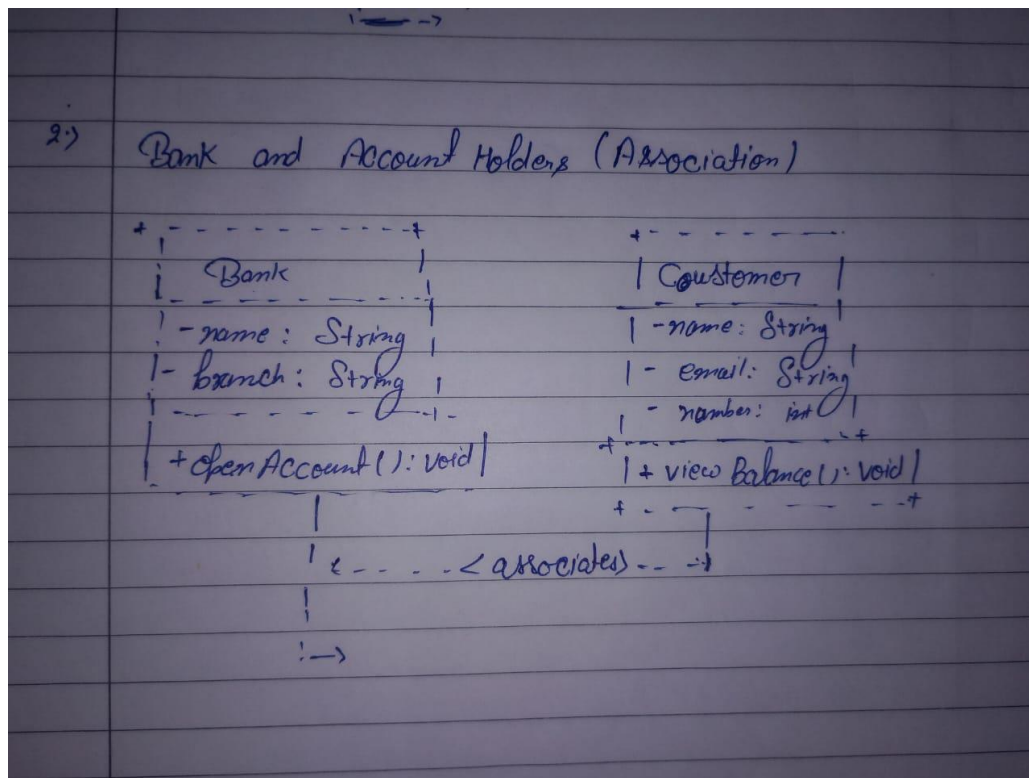 2.)
Bank and Account Holders (Association)
Bank
- name: String
- branch: String
+ openAccount(): void
Coustomer
- name: String
- email: String
- number: int
+ view Balance(): void
<associates>